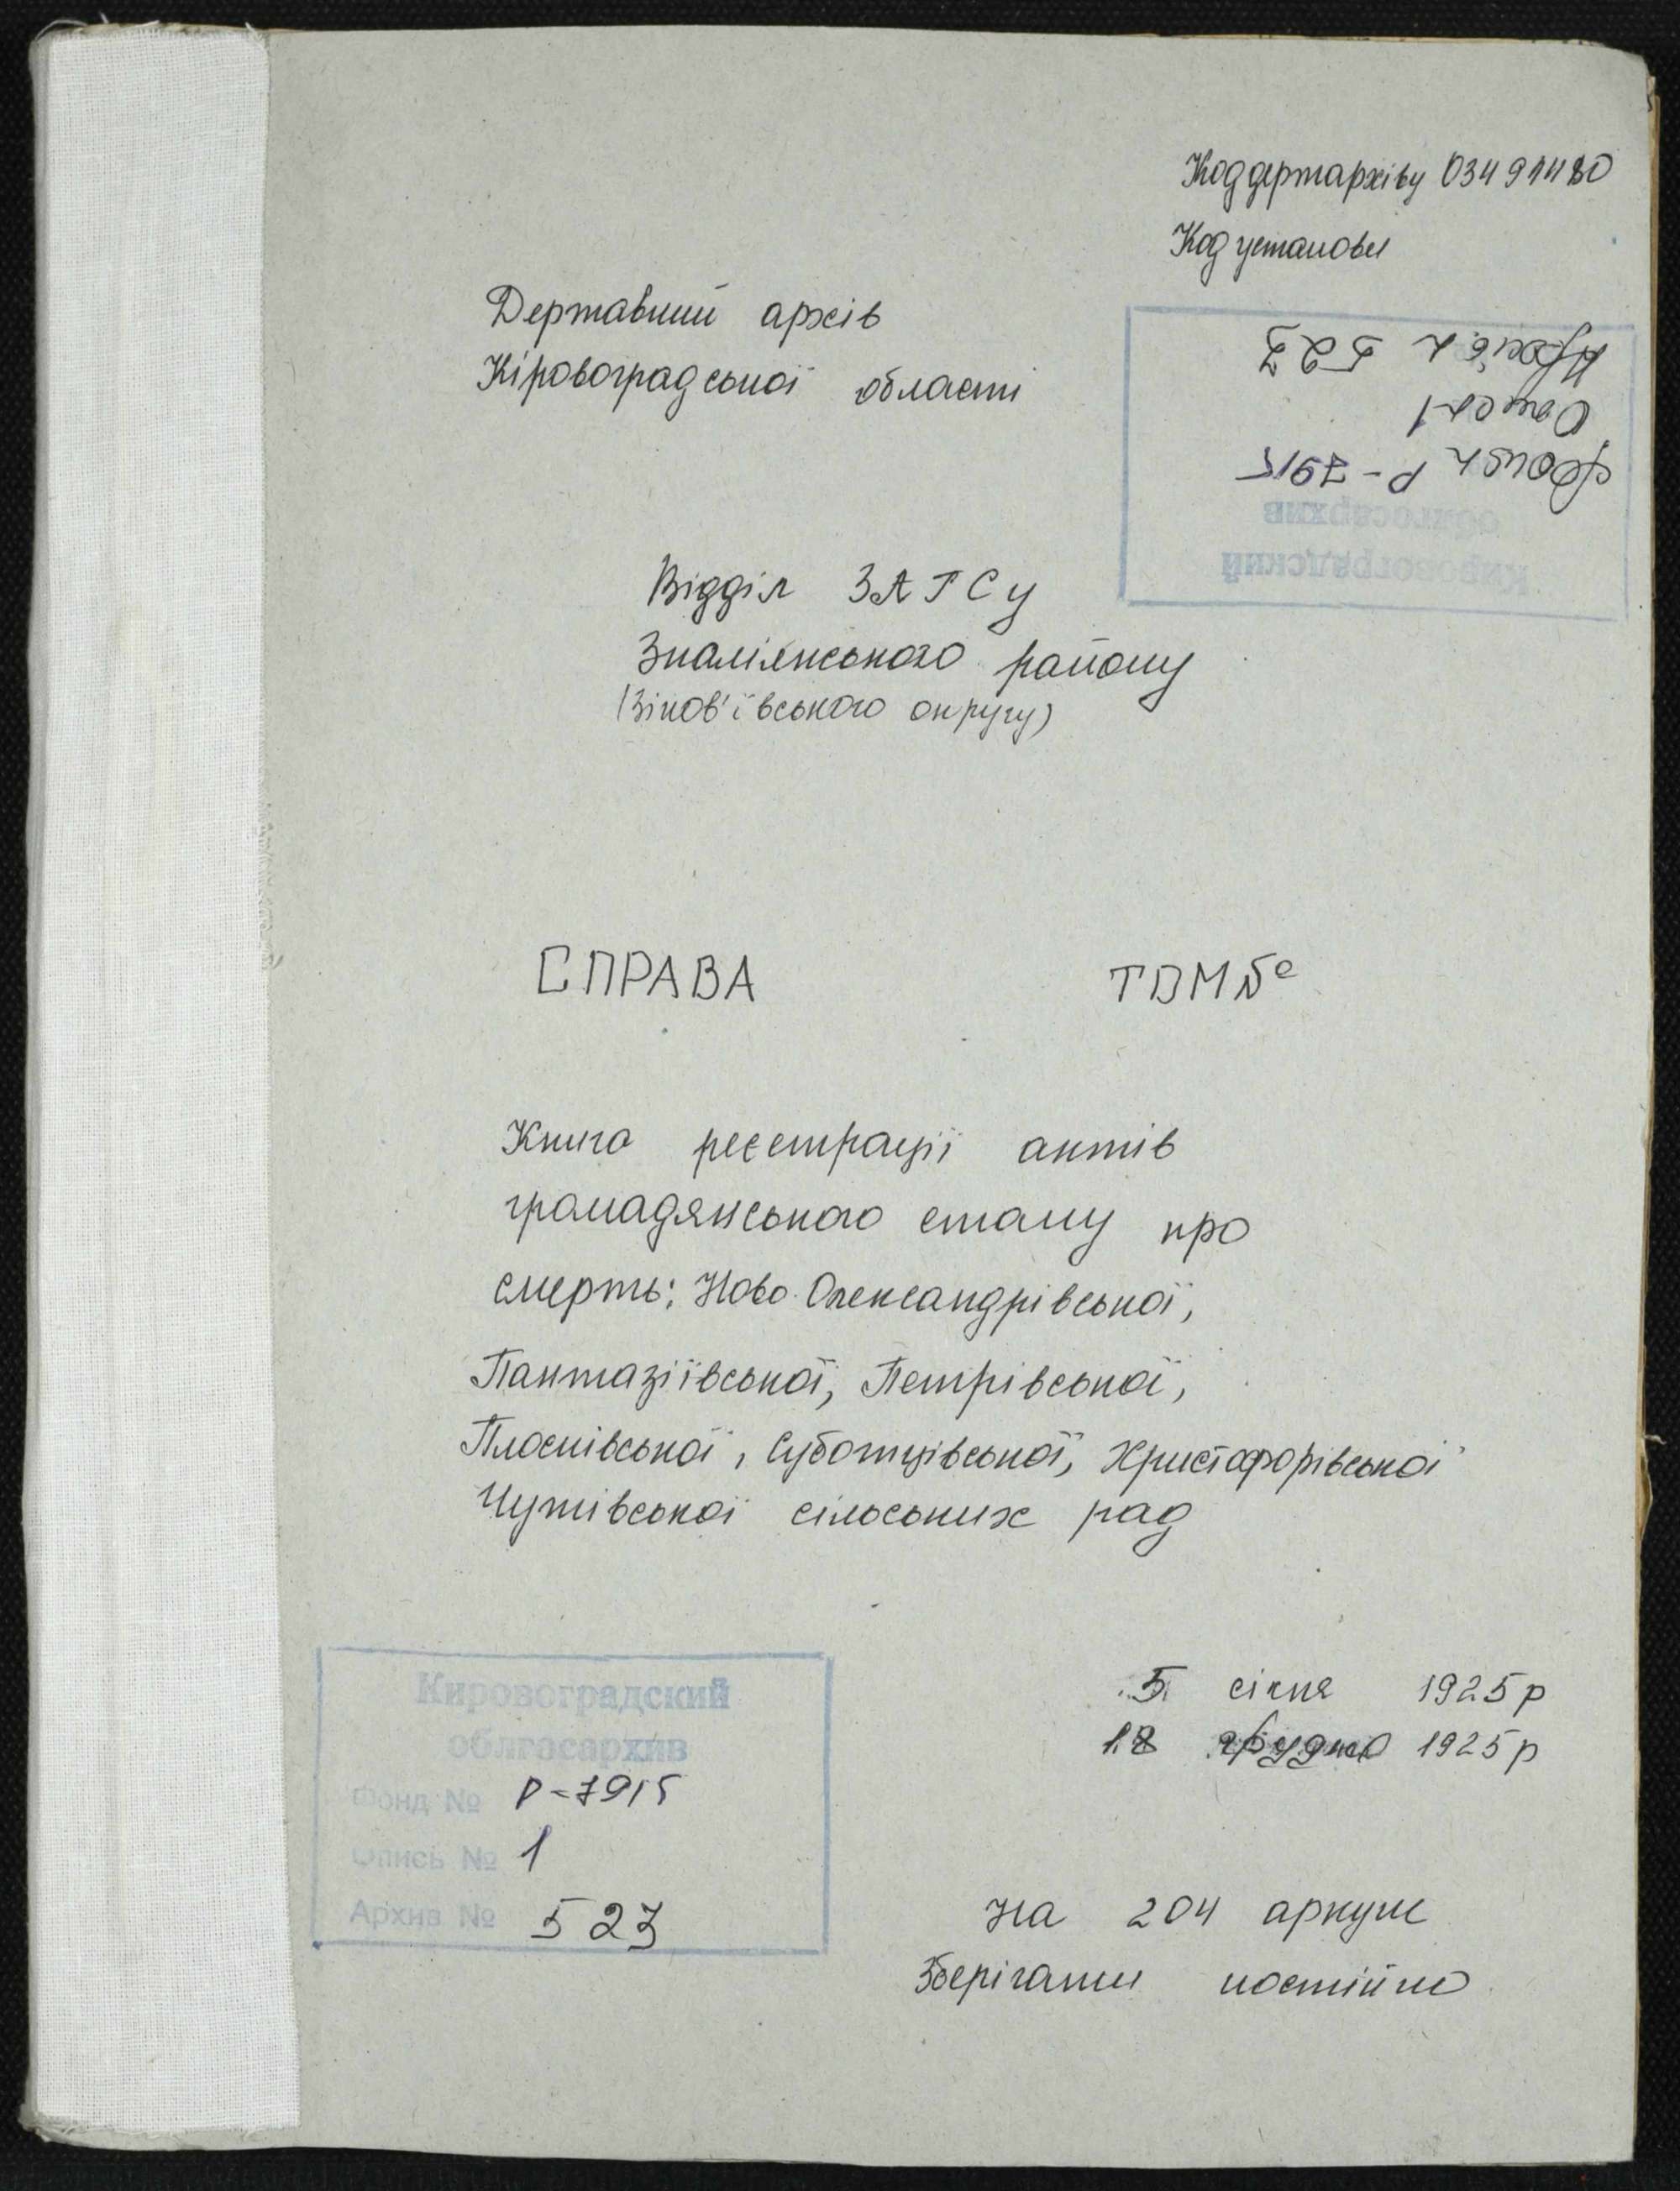 Код держархіву 03494480
Код установи
Державний архів
Кіровоградської області
Архів 523
Опис 1
Фонд Р-7915
облгосархив
Кировоградский
Відділ ЗАГСу
Знам'янського району
(Зінов'ївського округу)
СПРАВА ТОМ №
Книга реєстрації актів
громадянського стану про
смерть: Ново Олександрівської,
Пантазіївської, Петрівської,
Плосківської, Суботцівської, Христофорівської
Чутівської сільських рад
5 січня 1925 р
18 грудня 1925 р
Кировоградский
облгосархив
Фонд № Р-7915
Опись № 1
Архив № 523
На 204 аркуш
Зберігати постійно